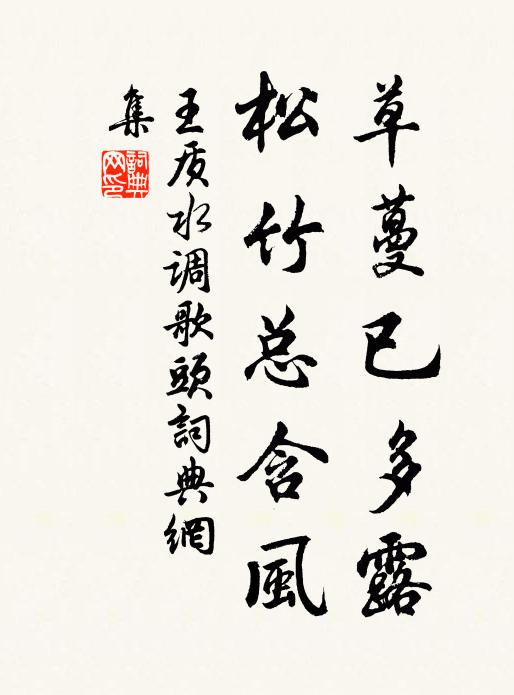 草蔓已多露
松竹总含風
王质水调歌頭詞典網
集
詞典网印